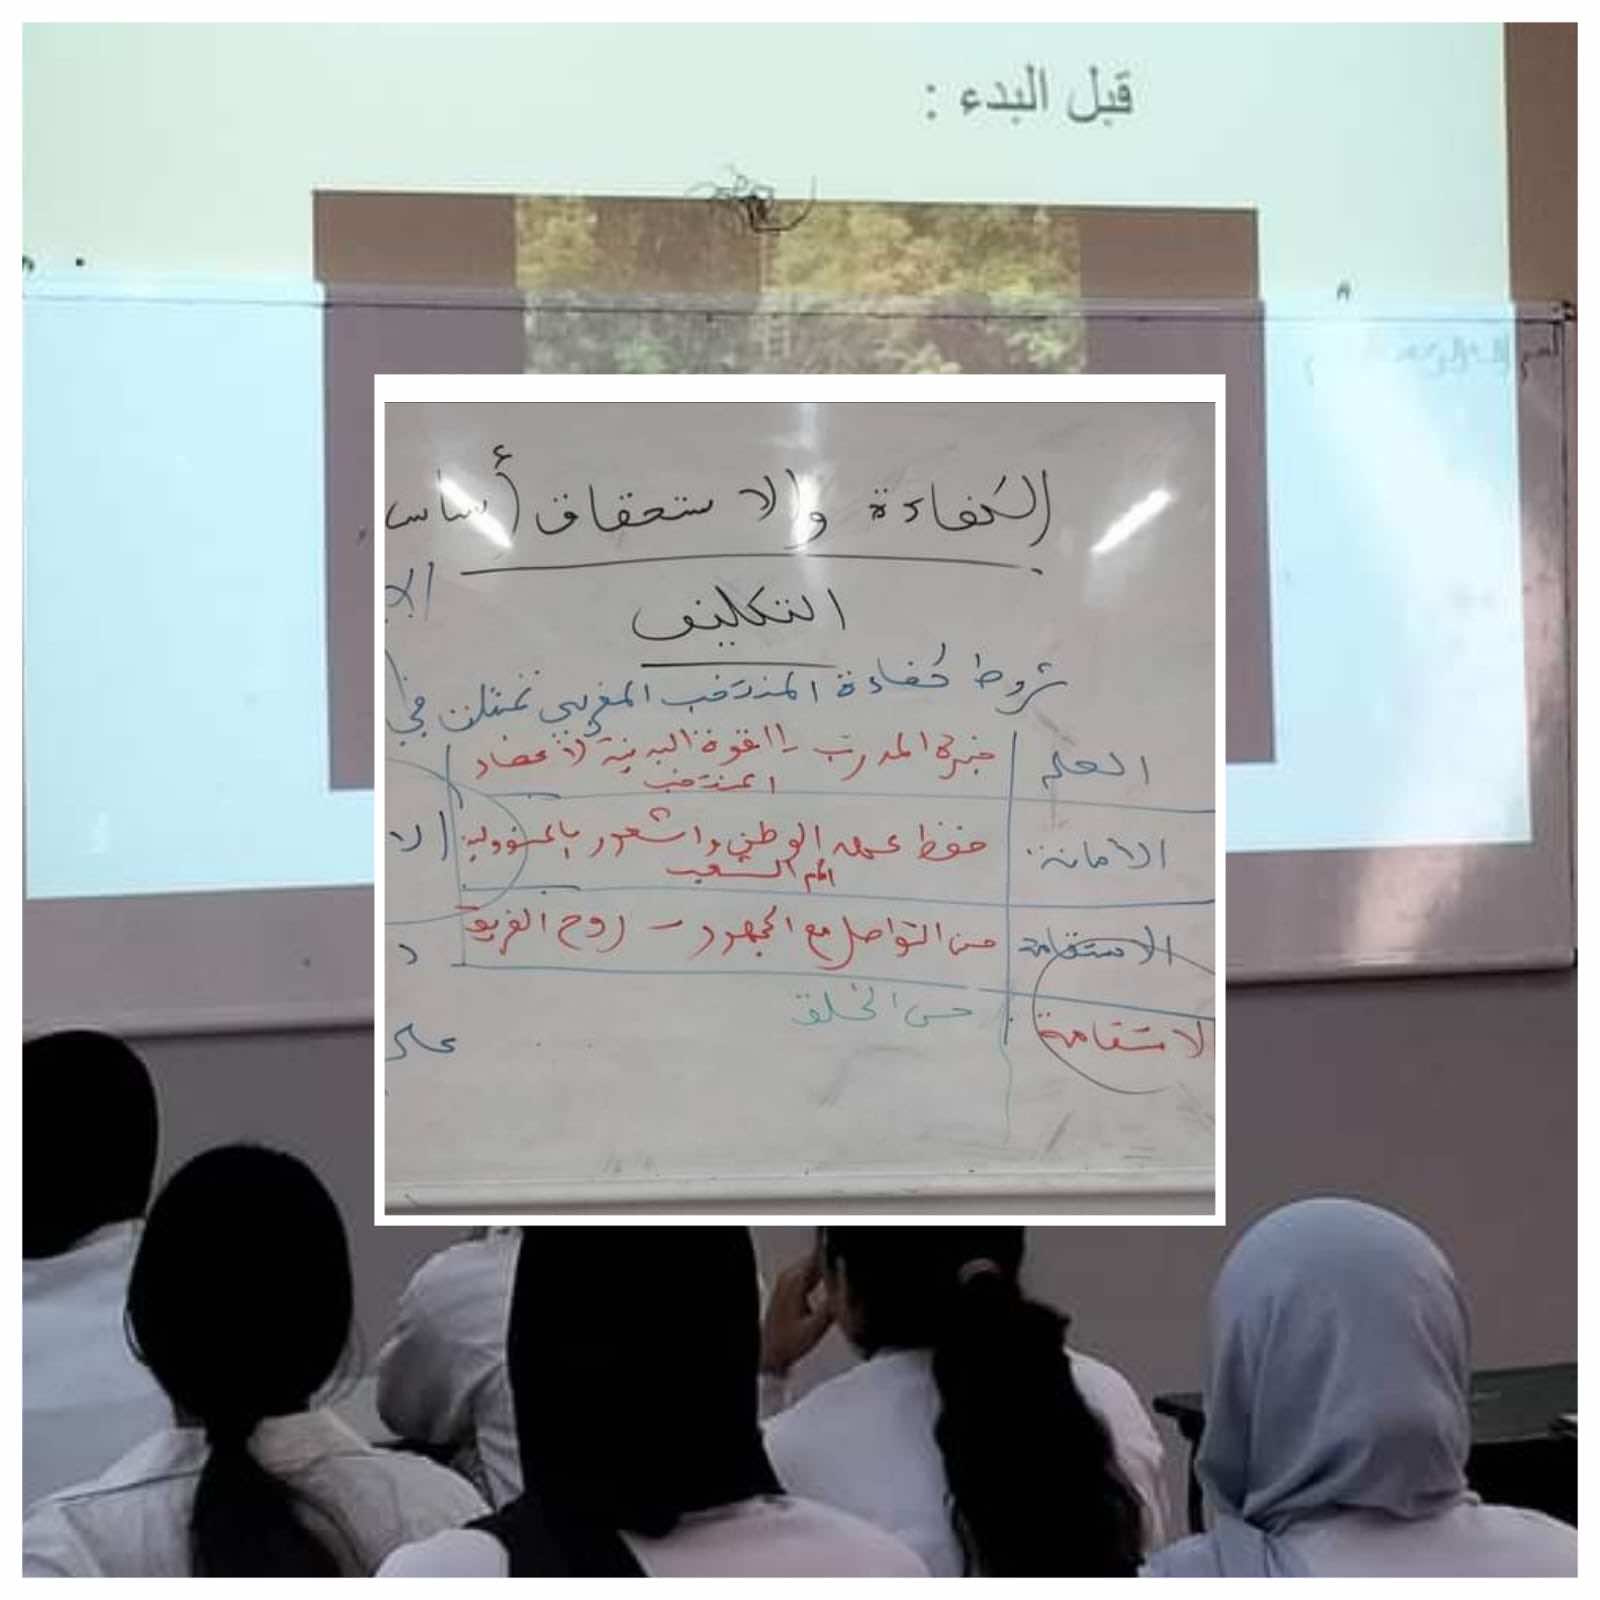 قبل البدء :
الكفاءة والاستحقاق أساس
التكليف
شروط كفاءة المنتخب المغربي تتمثلن في
العلم
خبرة المدرب - القوة البدنية لأعضاء
المنتخب
الأمانة
حفظ عهد الوطني والشعور بالمسؤولية
أمام الشعب
الاستقامة
حسن التواصل مع الجمهور - روح الفريق
حسن الخلق
الاستقامة